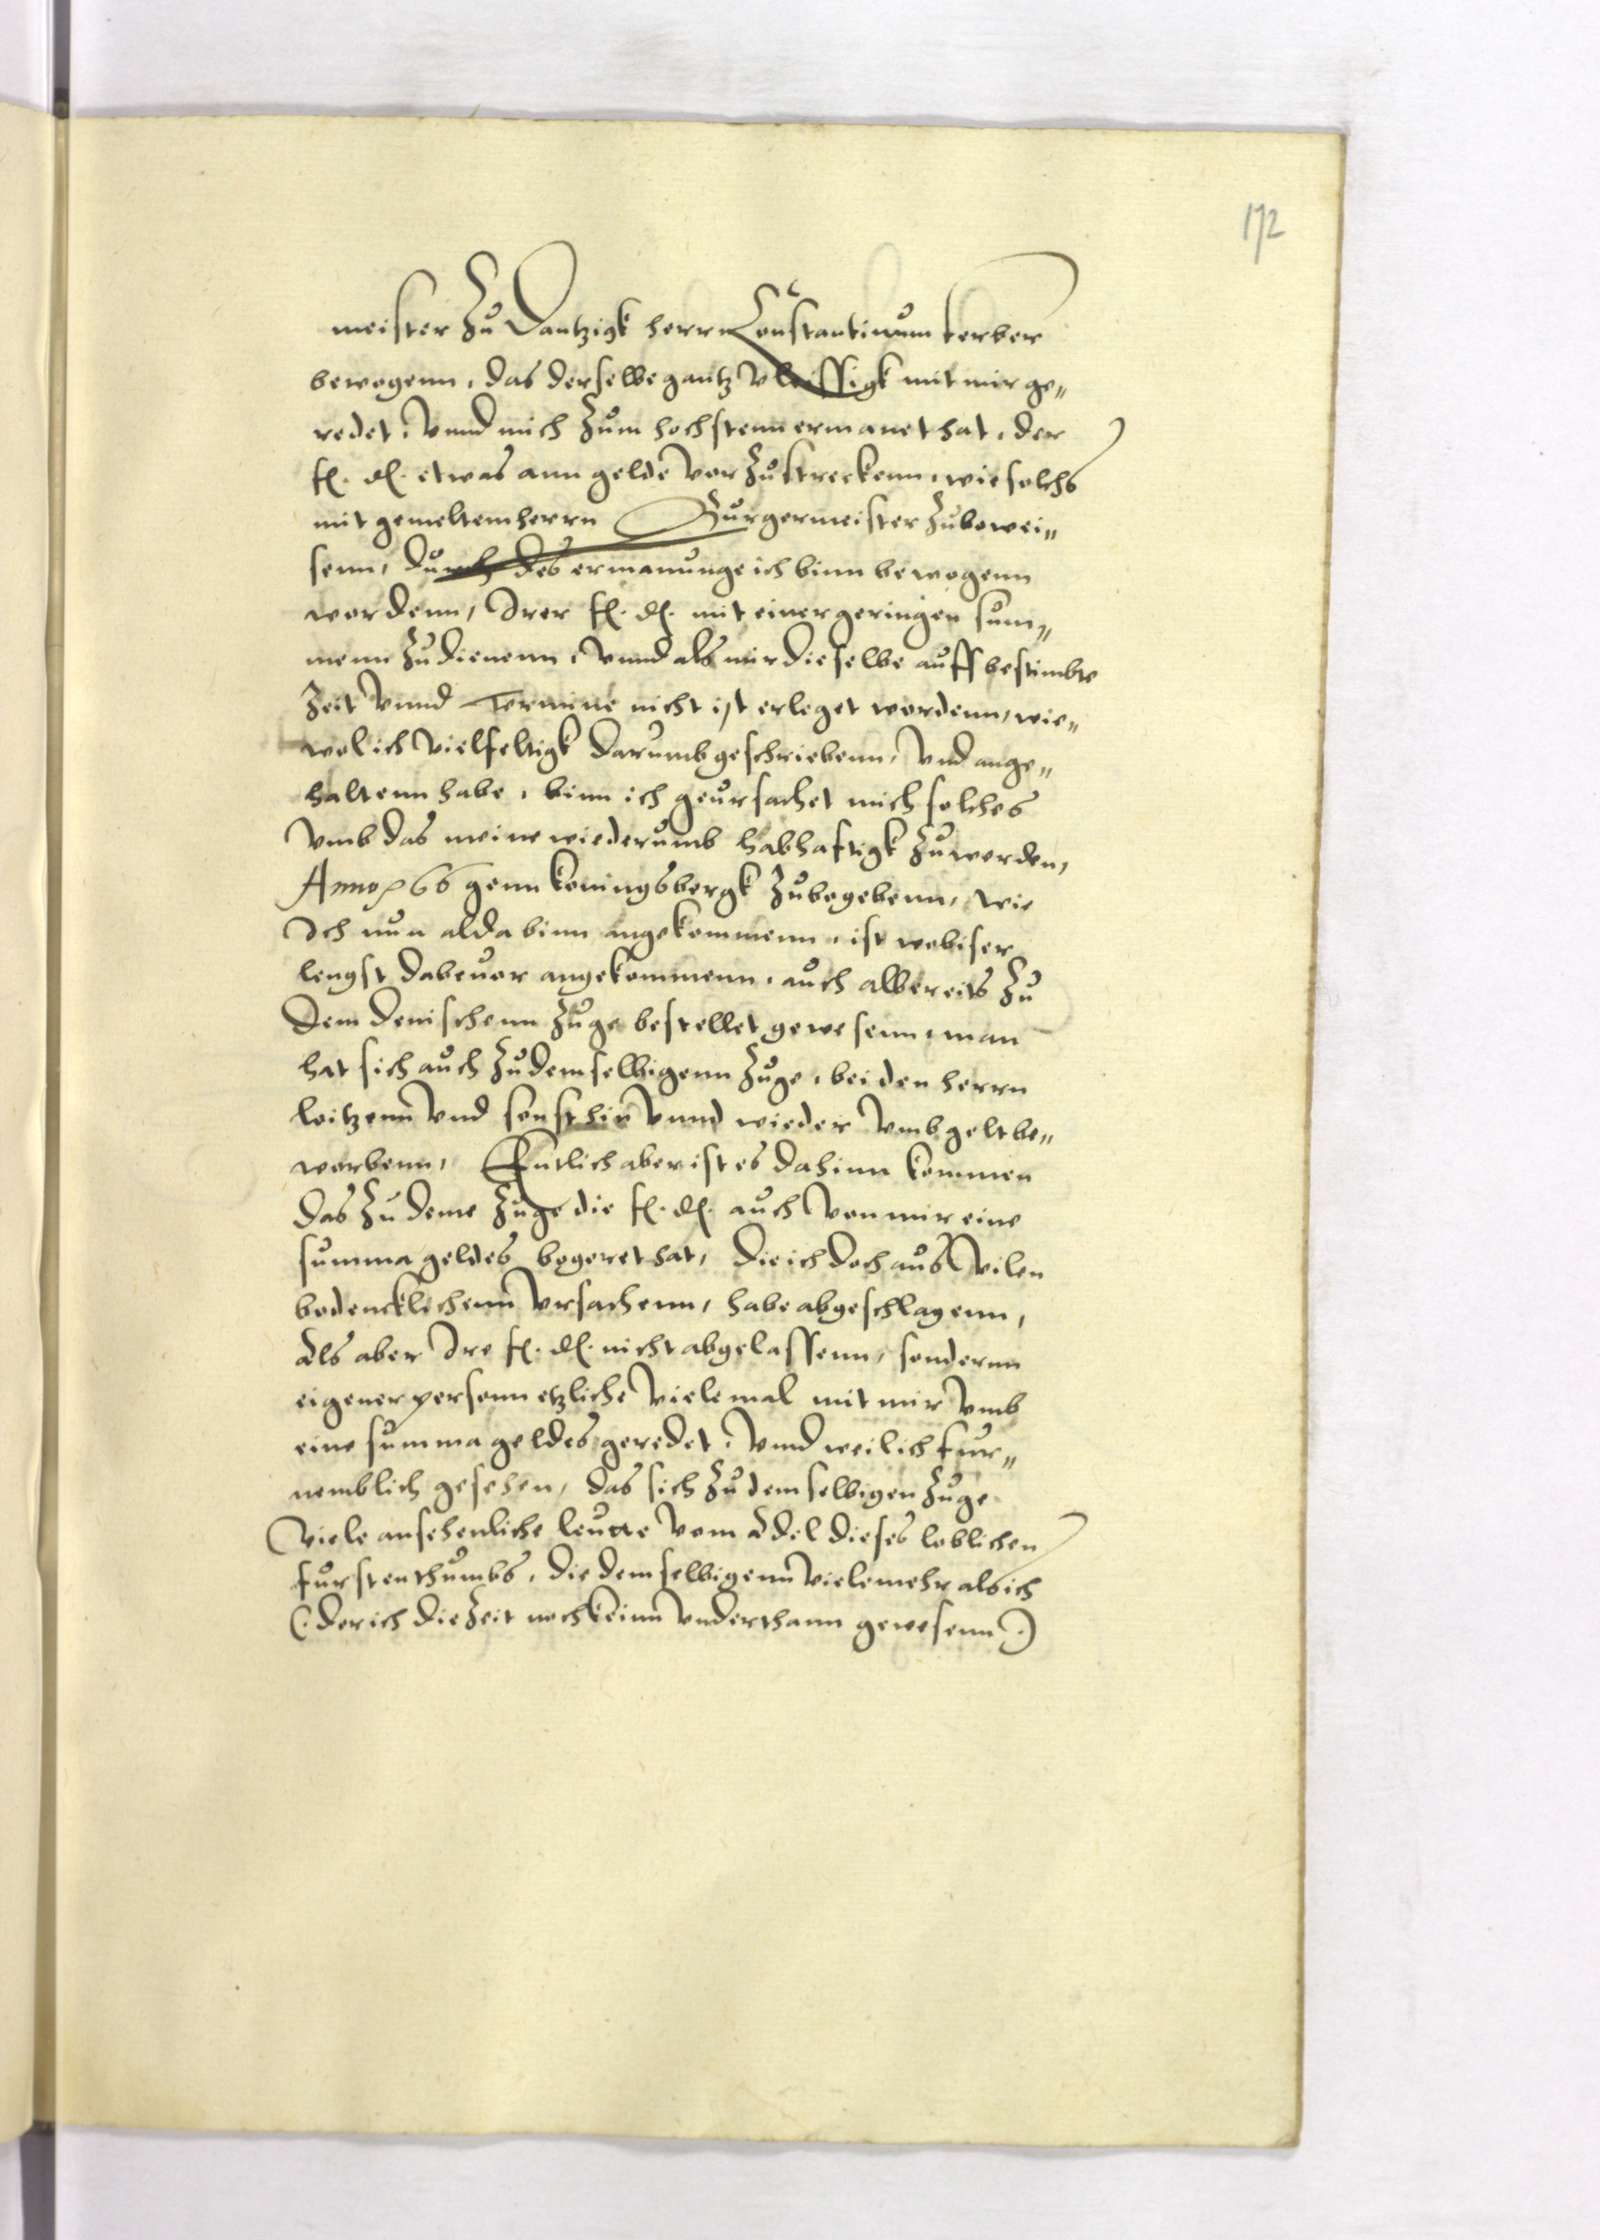 172
meister zu Dantzigk herrn Constantinum ferber
bewogenn, das derselbe gantz vleissigk mit mir ge„
redet, vnnd mich zum hochstenn ermanet hat, der
f. d. etwas ann gelde vorzustreckenn, wie solchs
mit gemeltem herrn Burgermeister zubewei„
senn, durch des ermanunge ich binn bewogenn
wordenn, Irer f. d. mit einer geringen sum„
menn zudienenn, vnnd als mir dieselbe auff bestimbte
Zeit vnnd Termine nicht ist erleget wordenn, wie„
wol ich vielfeltigk darumb geschriebenn, vnd ange„
haltenn habe, binn ich geursachet mich solches
vmb das meine wiederumb habhaftigk zuwerden,
Anno 66 genn koningsbergk zubegebenn, wie
Ich nun alda binn angekommenn, ist wobiser
lengst dabeuor angekommenn, auch albereits zu
dem denischenn zuge bestellet gewesenn, man
hat sich auch zudemselbigenn zuge, bei den herrn
loitzenn vnd sonst hin vnnd wieder vmb gelt be„
worbenn, Entlich aber ist es dahinn kommen
das zu deme zuge die f. d. auch von mir eine
summa geldes begeret hat, die ich doch aus vilen
bedencklichenn vrsachenn, habe abgeschlagenn,
Als aber Ire f. d. nicht abgelassenn, sondernn
eigener personn etzliche viele mal mit mir vmb
eine summa geldes geredet, vnnd weil ich fur„
nemblich gesehen, das sich zu demselbigen zuge
viele ansehenliche leutte vom Adel dieses loblichen
furstenthumbs, die demselbigenn viele mehr als ich
(: der ich die Zeit noch keinn vnderthann gewesenn :)